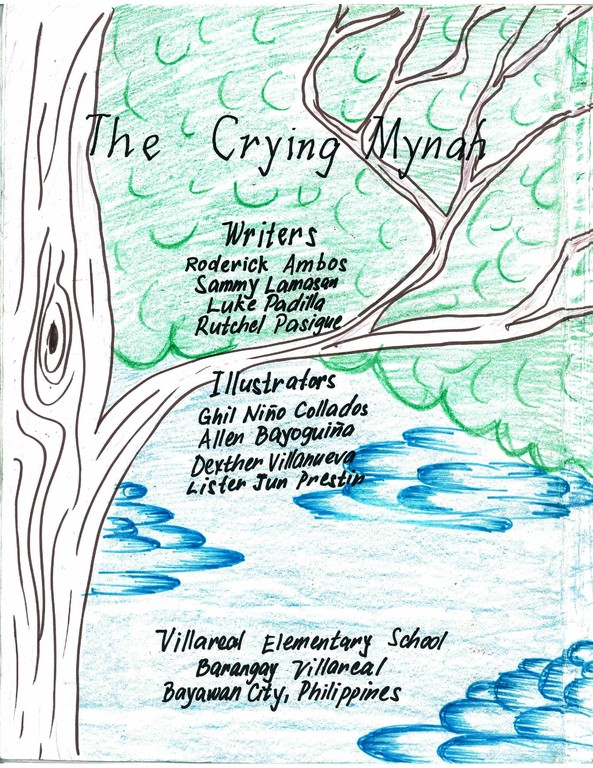 The Crying Mynah
Writers
Roderick Ambos
Sammy Lamasan
Luke Padilla
Rutchel Pasigue
Illustrators
Ghil Niño Collados
Allen Bayoguiña
Dexther Villanueva
Lister Jun Prestin
Villareal Elementary School
Barangay Villareal
Bayawan City, Philippines